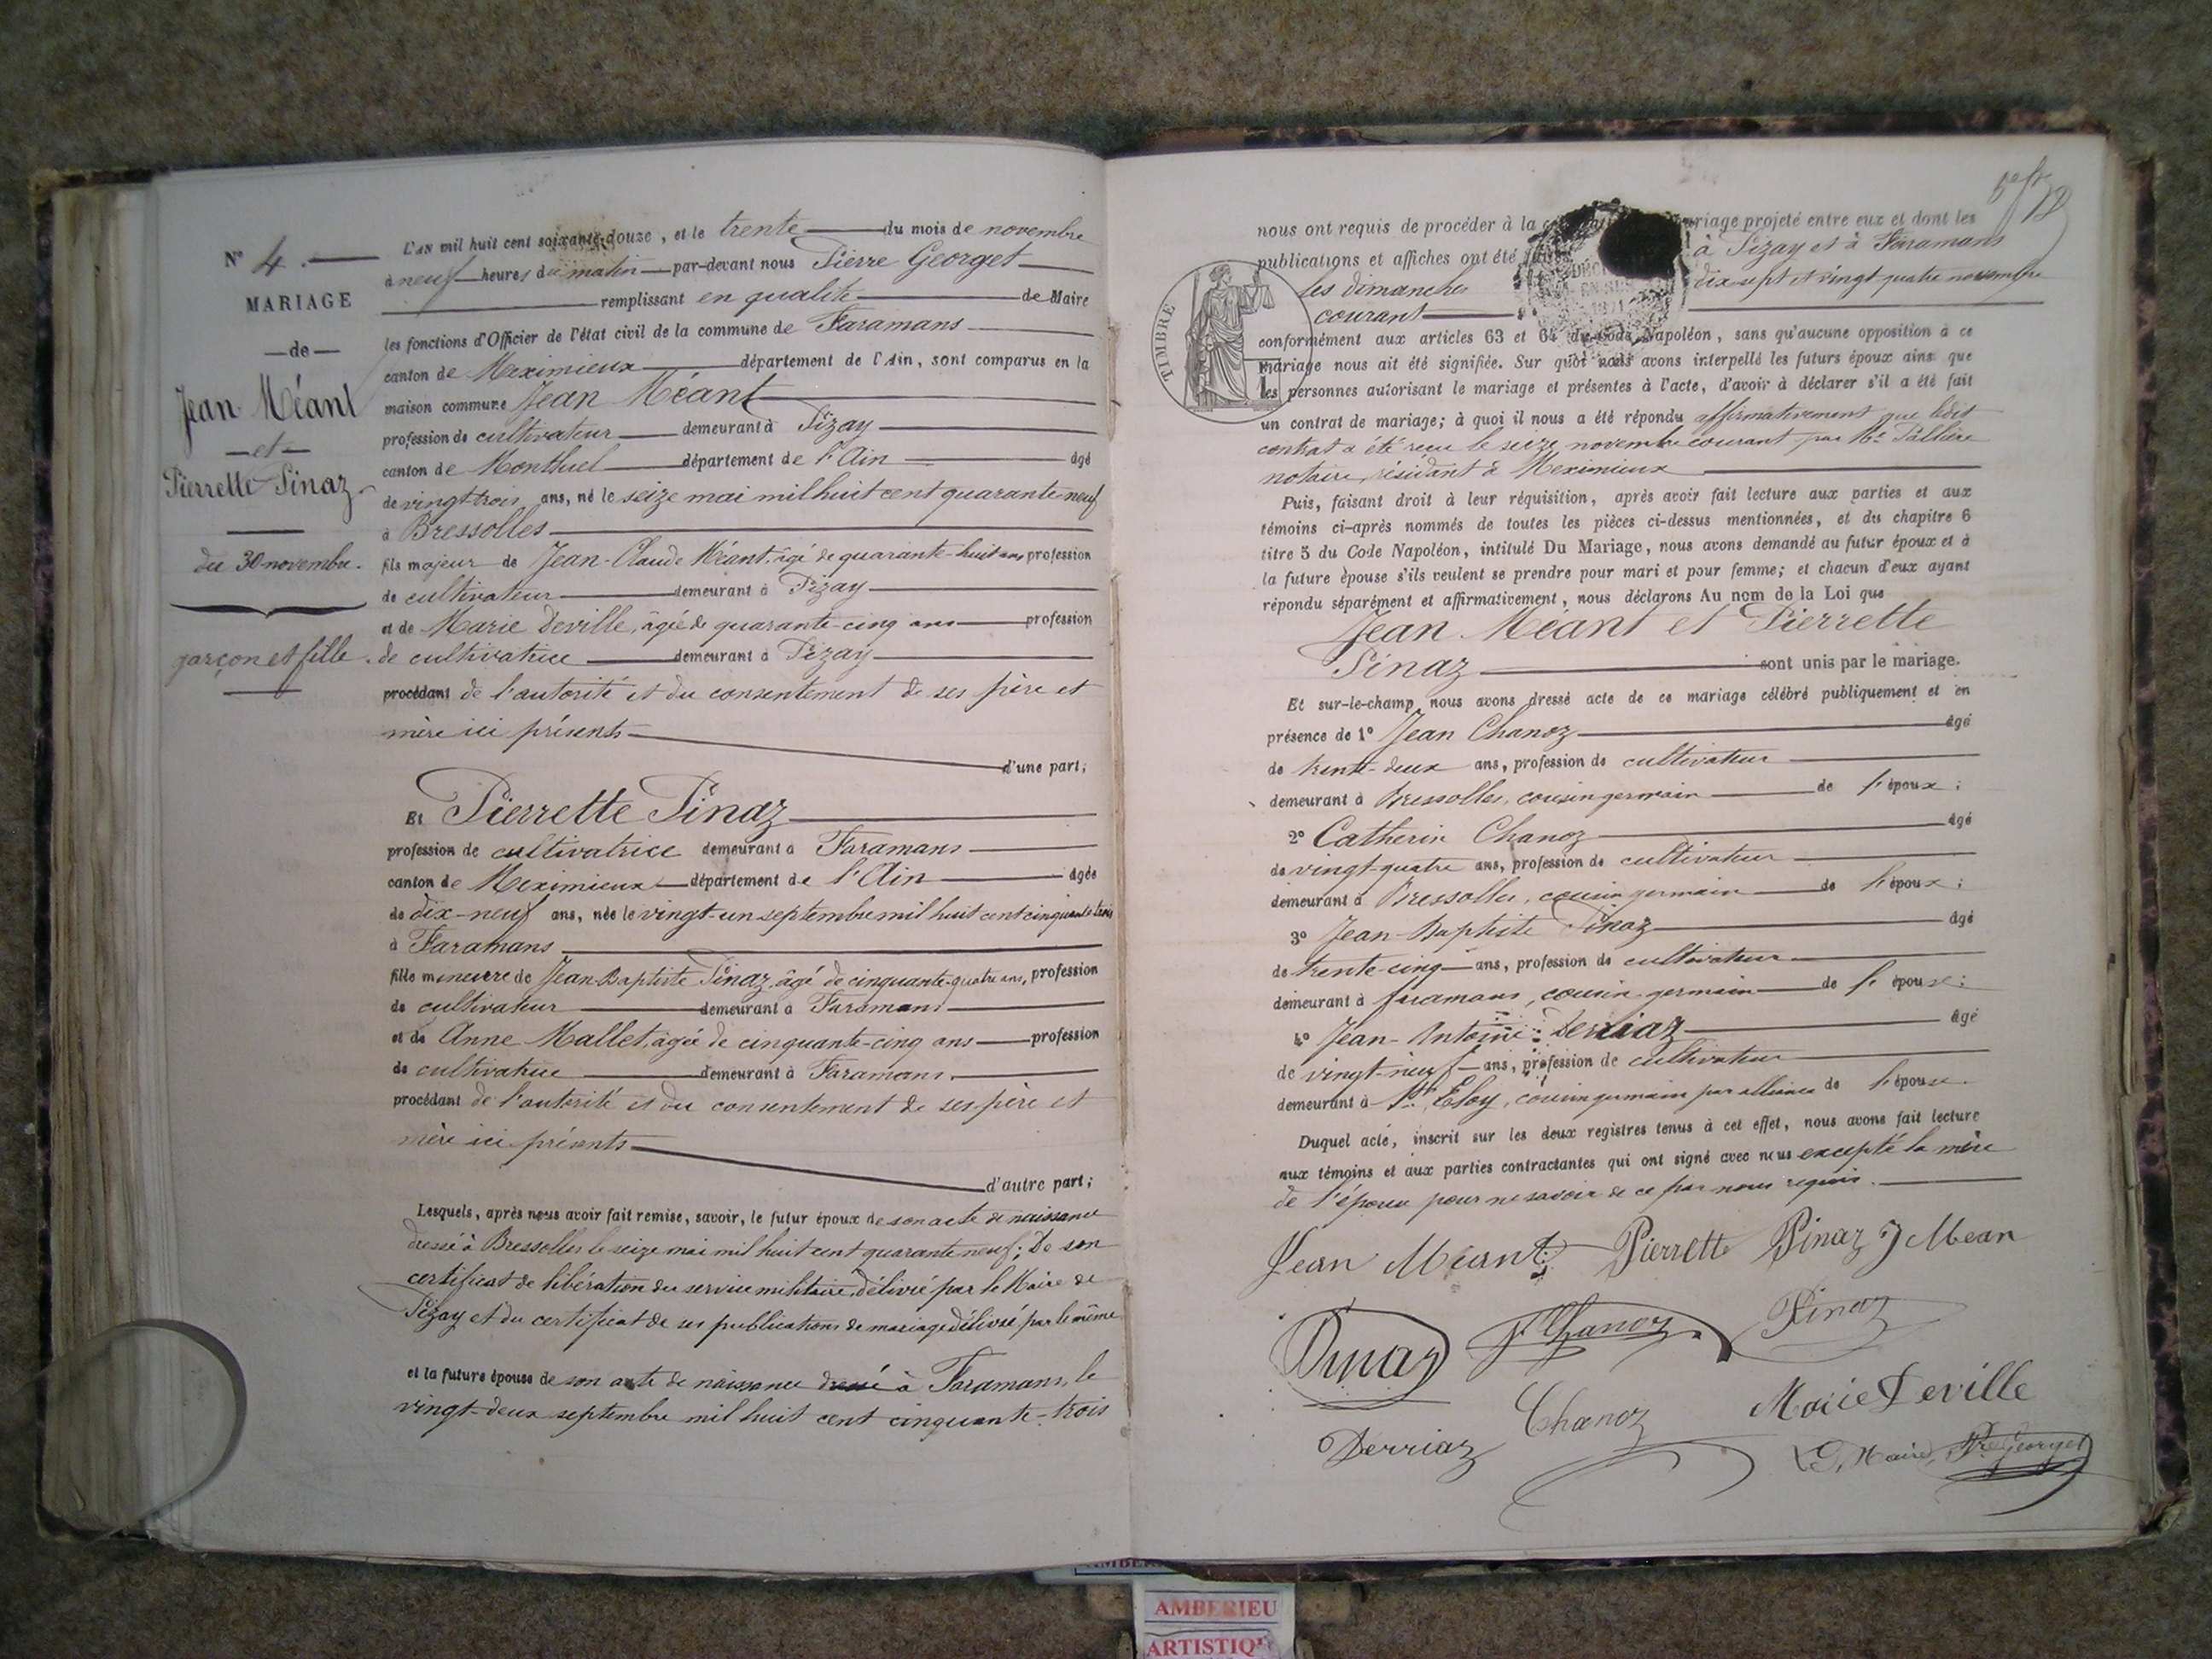 N° 4.
MARIAGE
de
Jean Méant
et
Pierrette Pinaz
du 30 novembre.
garçon et fille.
L'AN mil huit cent soixante-douze, et le trente du mois de novembre
à neuf heures du matin par-devant nous Pierre Georget
remplissant en qualité de Maire
les fonctions d'Officier de l'état civil de la commune de Faramans
canton de Meximieux département de l'Ain, sont comparus en la
maison commune Jean Méant
profession de cultivateur demeurant à Pizay
canton de Montluel département de l'Ain âgé
de vingt-trois ans, né le seize mai mil huit cent quarante-neuf
à Bressolles
fils majeur de Jean-Claude Méant, âgé de quarante-huit ans profession
de cultivateur demeurant à Pizay
et de Marie Deville, âgée de quarante-cinq ans profession
de cultivatrice demeurant à Pizay
procédant de l'autorité et du consentement de ses père et
mère ici présents
d'une part;
Et Pierrette Pinaz
profession de cultivatrice demeurant à Faramans
canton de Meximieux département de l'Ain âgée
de dix-neuf ans, née le vingt-un septembre mil huit cent cinquante trois
à Faramans
fille mineure de Jean-Baptiste Pinaz, âgé de cinquante-quatre ans, profession
de cultivateur demeurant à Faramans
et de Anne Mallet, âgée de cinquante-cinq ans profession
de cultivatrice demeurant à Faramans.
procédant de l'autorité et du consentement de ses père et
mère ici présents
d'autre part;
Lesquels, après nous avoir fait remise, savoir, le futur époux de son acte de naissance
dressé à Bressolles le seize mai mil huit cent quarante neuf; De son
certificat de libération du service militaire, délivré par le Maire de
Pizay et du certificat de ses publications de mariage délivré par le même
et la future épouse de son acte de naissance dressé à Faramans, le
vingt-deux septembre mil huit cent cinquante-trois
nous ont requis de procéder à la mariage projeté entre eux et dont les
publications et affiches ont été à Pizay et à Faramans
les dimanches dix-sept et vingt-quatre novembre
courant
TIMBRE
conformément aux articles 63 et 64 du Code Napoléon, sans qu'aucune opposition à ce
mariage nous ait été signifiée. Sur quoi nous avons interpellé les futurs époux ains que
les personnes autorisant le mariage et présentes à l'acte, d'avoir à déclarer s'il a été fait
un contrat de mariage; à quoi il nous a été répondu affirmativement que ledit
contrat a été reçu le seize novembre courant par Me
notaire, résidant à Meximieux
Puis, faisant droit à leur réquisition, après avoir fait lecture aux parties et aux
témoins ci-après nommés de toutes les pièces ci-dessus mentionnées, et du chapitre 6
titre 5 du Code Napoléon, intitulé Du Mariage, nous avons demandé au futur époux et à
la future épouse s'ils veulent se prendre pour mari et pour femme; et chacun d'eux ayant
répondu séparément et affirmativement, nous déclarons Au nom de la Loi que
Jean Méant et Pierrette
Pinaz sont unis par le mariage.
Et sur-le-champ nous avons dressé acte de ce mariage célébré publiquement et en
présence de 1° Jean Chanoz âgé
de trente-deux ans, profession de cultivateur
demeurant à Bressolles, cousin germain de l'époux;
2° Catherin Chanoz âgé
de vingt-quatre ans, profession de cultivateur
demeurant à Bressolles, cousin germain de l'époux;
3° Jean-Baptiste Pinaz âgé
de trente-cinq ans, profession de cultivateur
demeurant à faramans, cousin germain de l'épouse;
4° Jean-Antoine Derriaz âgé
de vingt-neuf ans, profession de cultivateur
demeurant à St Eloy, cousin germain par alliance de l'épouse.
Duquel acte, inscrit sur les deux registres tenus à cet effet, nous avons fait lecture
aux témoins et aux parties contractantes qui ont signé avec nous excepté la mère
de l'épouse pour ne savoir de ce par nous requis.
Jean Méant Pierrette Pinaz J Mean
Pinaz J Chanoz Pinaz
Chanoz Marie Deville
Derriaz Le Maire, Pre Georget
AMBERIEU
ARTISTIQ